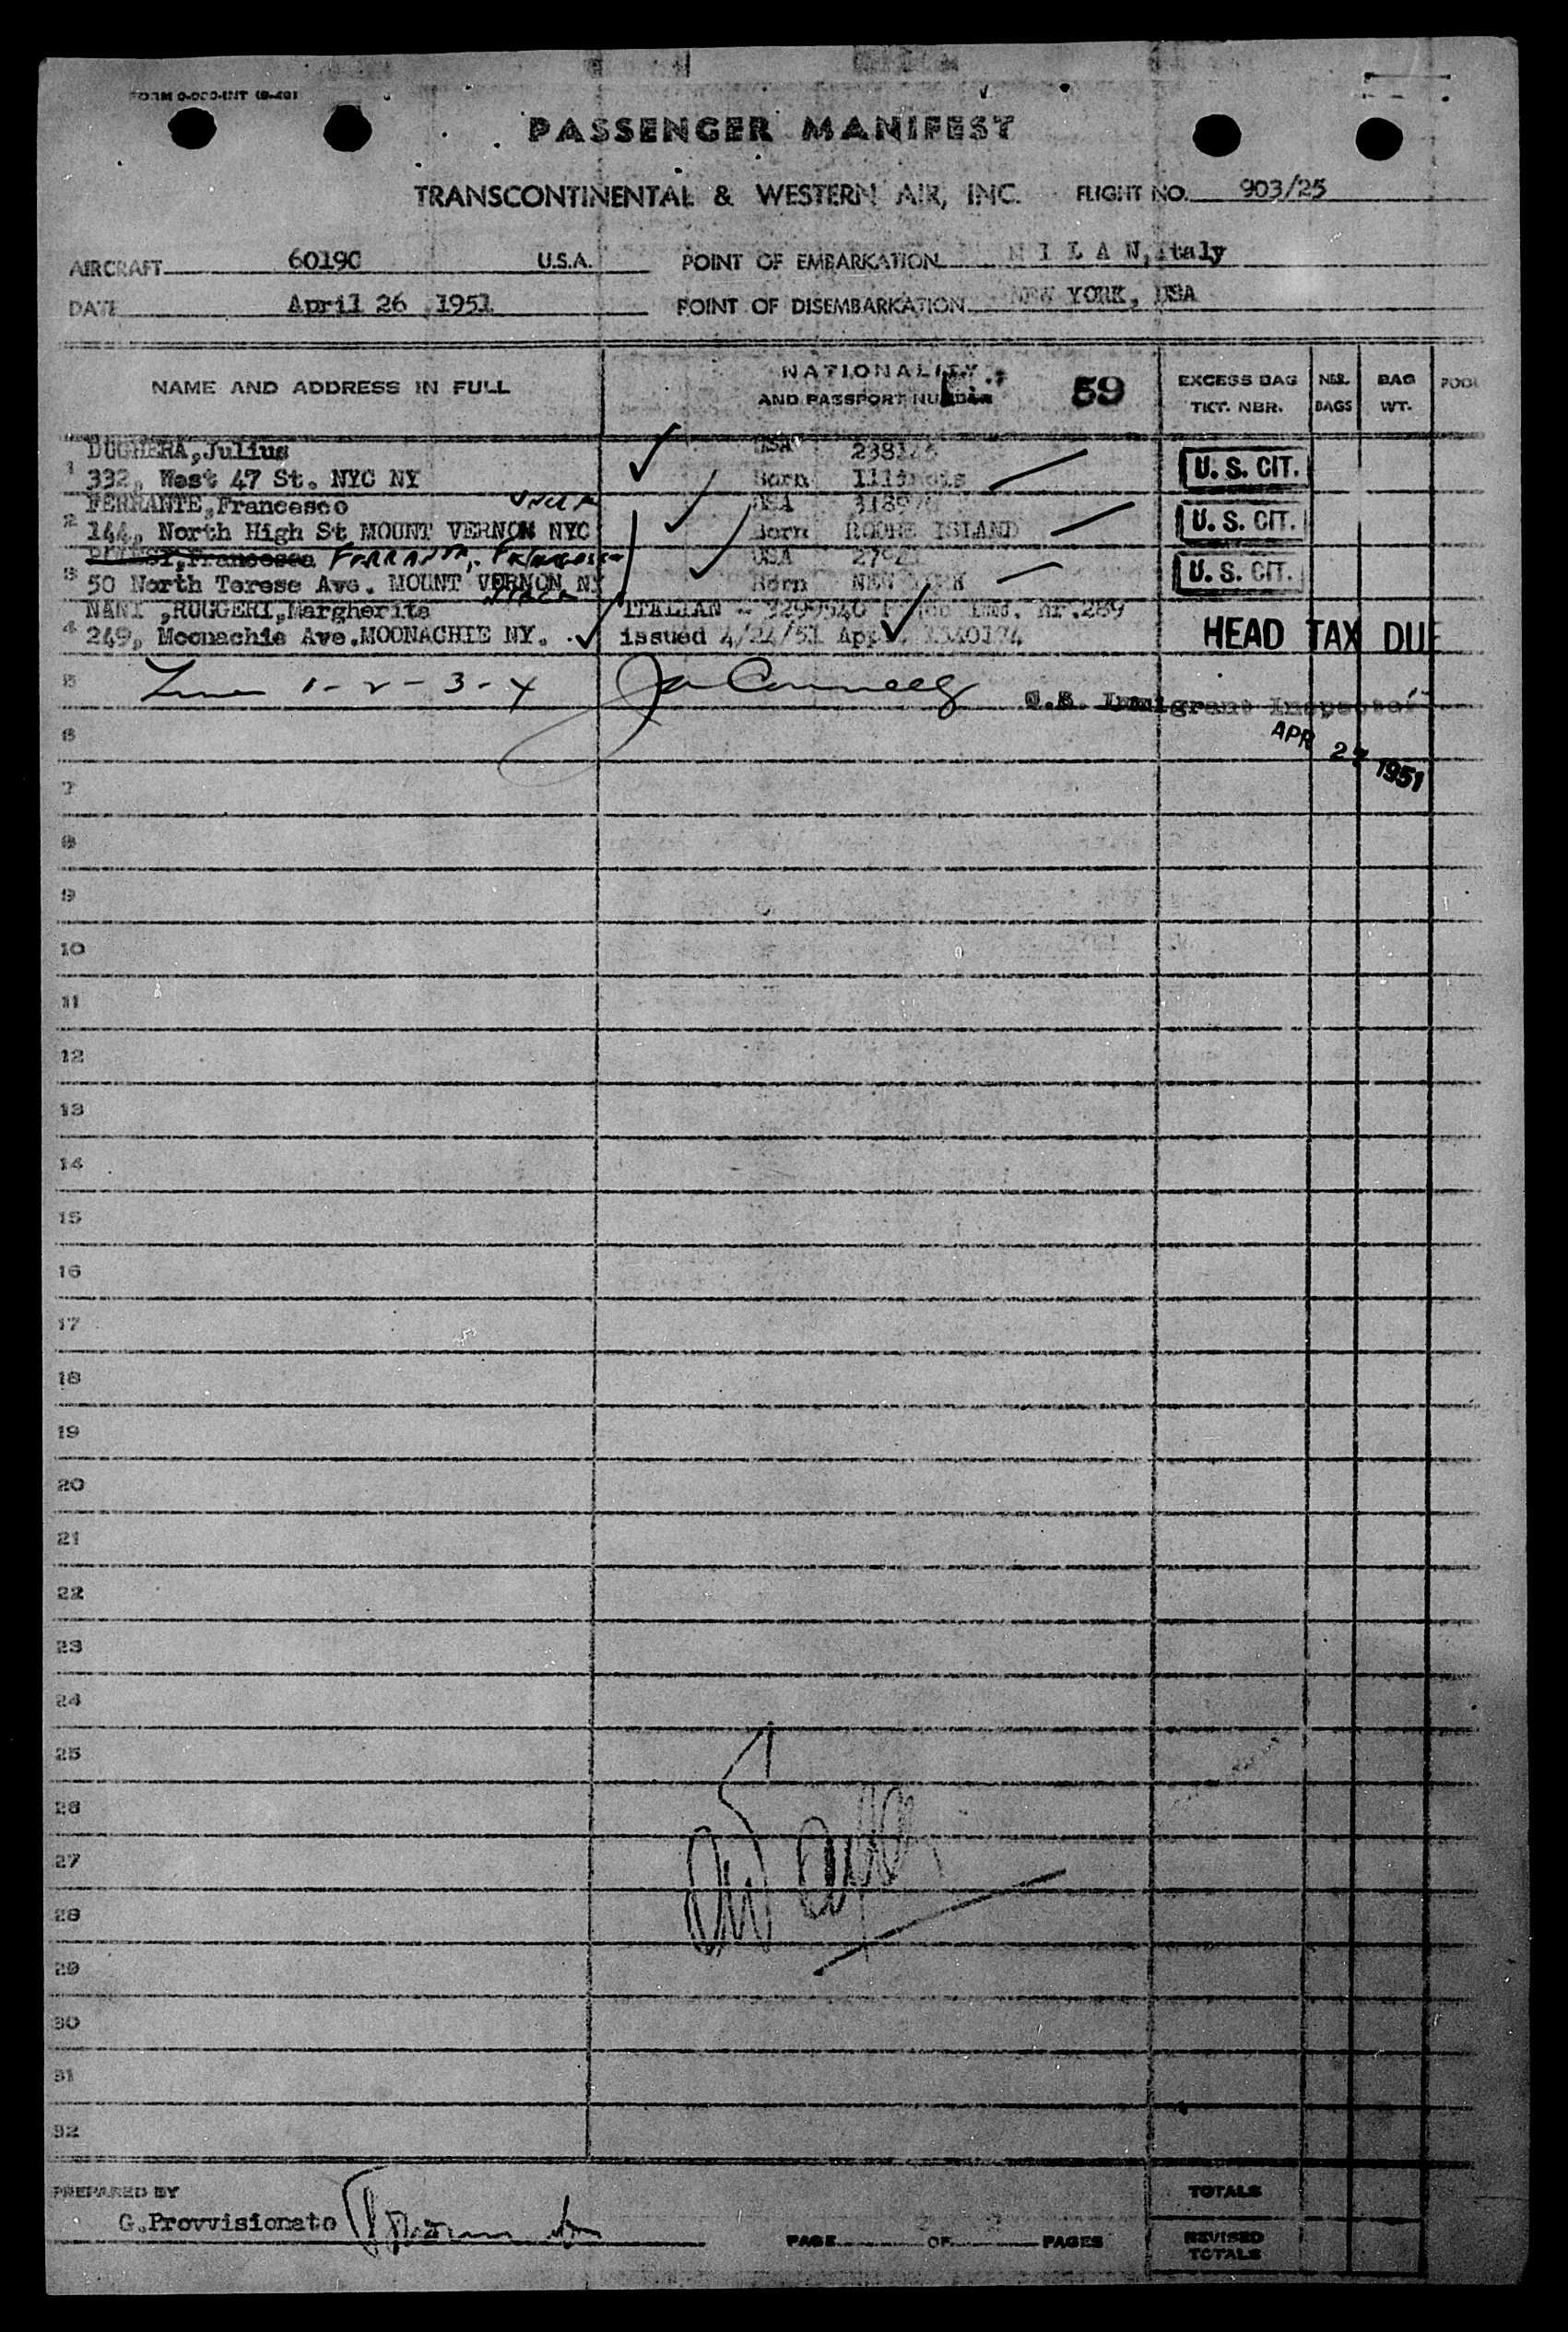 PASSENGER MANIFEST
TRANSCONTINENTAL & WESTERN AIR, INC. FLIGHT NO. 903/25
AIRCRAFT 6019C U.S.A. POINT OF EMBARKATION M I L A N, Italy
DATE April 26 1951 POINT OF DISEMBARKATION NEW YORK, USA
NAME AND ADDRESS IN FULL NATIONALITY AND PASSPORT NUMBER 59 EXCESS BAG TKT. NBR. NBR. BAGS BAG WT.
DUGHERA, Julius USA
1 332, West 47 St. NYC NY Born Illinois U. S. CIT.
FERRANTE, Francesco UNCLE USA
2 144, North High St MOUNT VERNON NYC Born RODHE ISLAND U. S. CIT.
Francesca FERRANTE, USA
3 50 North Terese Ave. MOUNT VERNON NY Born NEW YORK U. S. CIT.
NANI ,RUGGERI, Margherita NIECE ITALIAN - 3299540 Nr.289
4 249, Moonachie Ave. MOONACHIE NY. issued 4/24/51 HEAD TAX DUE
5 1-2-3-4 U.S. Immigrant Inspector
6 APR 27 1951
7
8
9
10
11
12
13
14
15
16
17
18
19
20
21
22
23
24
25
26
27
28
29
30
31
32
PREPARED BY TOTALS
G. Provvisionato
PAGE OF PAGES REVISED TOTALS